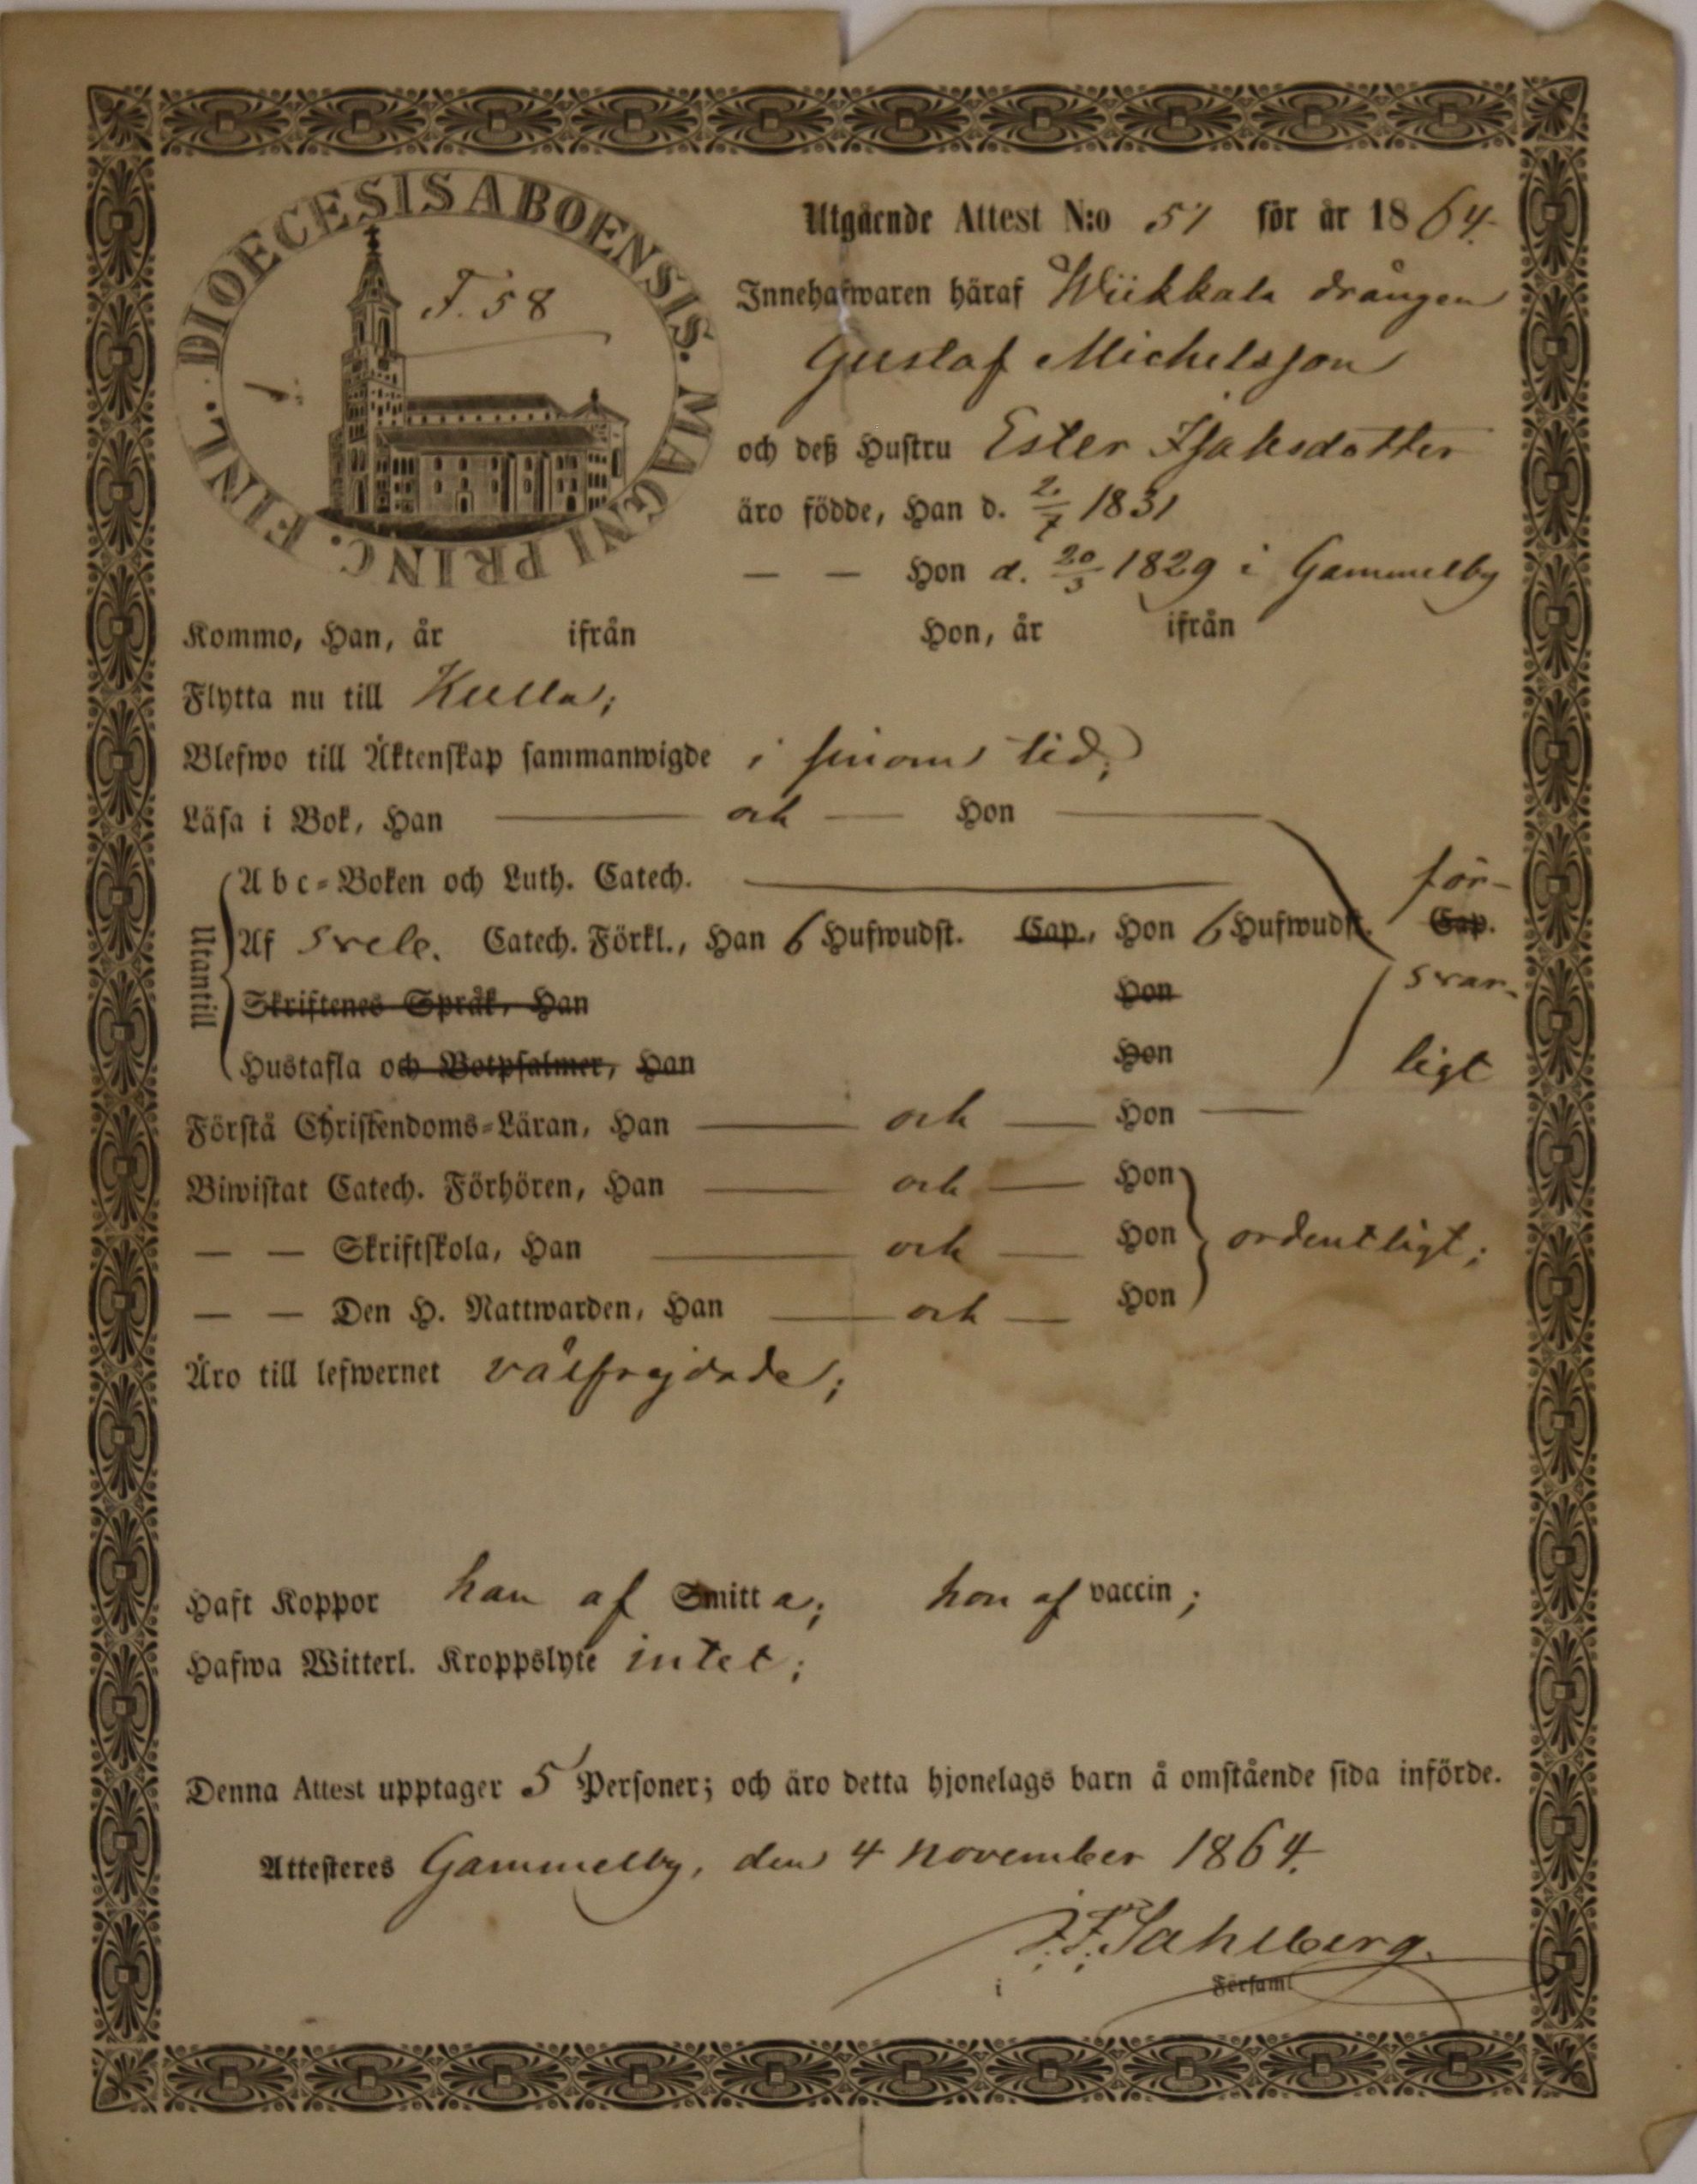 DIOECESIS ABOENSIS. MAGNI PRINC. FINL.
F. 58
Utgående Attest N:o 51 för år 1864.
Innehafwaren häraf Wiikkala drängen
Gustaf Michelsson
och deß Hustru Ester Isaksdotter
äro födde, Han d. 2/7 1831
— — Hon d. 20/3 1829 i Gammelby
Kommo, Han, år ifrån Hon, år ifrån
Flytta nu till Kulla;
Blefwo till Äktenskap sammanwigde i sinom tid;
Läsa i Bok, Han — och — Hon —
Utantill
Abc-Boken och Luth. Catech. — för-
Af Svele. Catech. Förkl., Han 6 Hufwudst. Cap., Hon 6 Hufwudst. Cap.
Skriftenes Språk, Han Hon svar-
Hustafla och Botpsalmer, Han Hon ligt
Förstå Christendoms-Läran, Han — och — Hon —
Biwistat Catech. Förhören, Han — och — Hon
— — Skriftskola, Han — och — Hon ordentligt;
— — Den H. Nattwarden, Han — och — Hon
Äro till lefwernet välfrejdade;
Haft Koppor han af Smitta; hon af vaccin;
Hafwa Witterl. Kroppslyte intet;
Denna Attest upptager 5 Personer; och äro detta hjonelags barn å omstående sida införde.
Attesteres Gammelby, den 4 November 1864.
F. Sahlberg.
i Församl